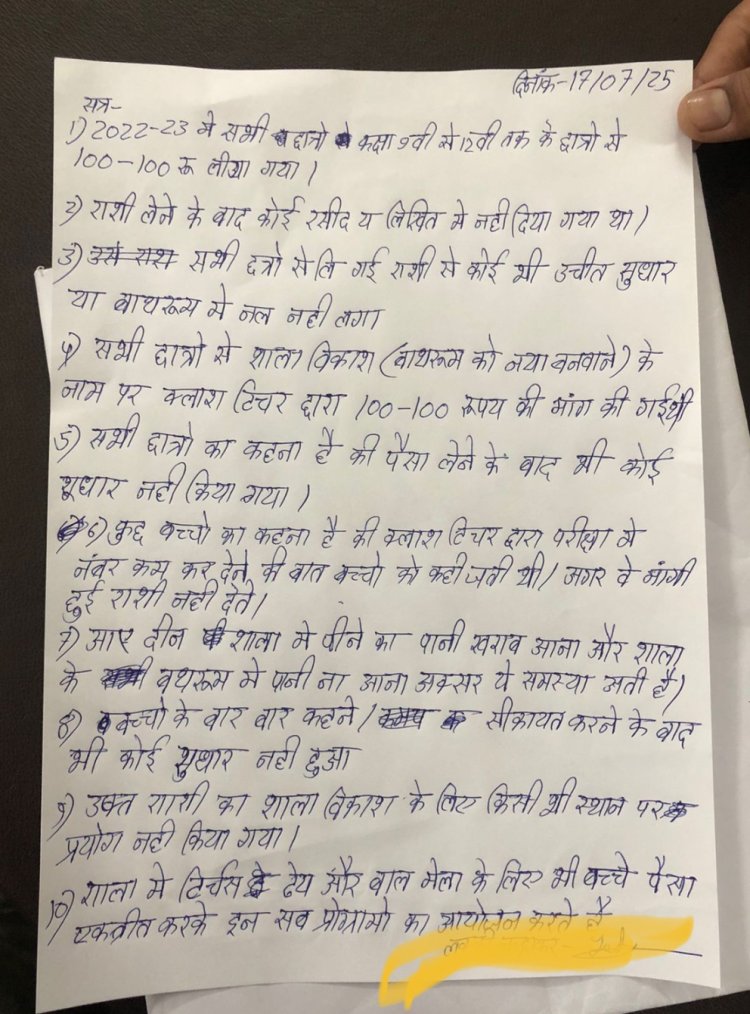 दिनांक-17/07/25
सत्र-
1) 2022-23 मे सभी छात्रो कक्षा 9वी से 12वी तक के छात्रो से
100-100 रू लीया गया।
2) राशी लेने के बाद कोई रसीद य लिखित मे नही दिया गया था।
3) सभी छत्रो से लि गई राशी से कोई भी उचीत सुधार
या बाथरूम मे नल नही लगा
4) सभी छात्रो से शाला विकाश (बाथरूम को नया बनवाने) के
नाम पर क्लाश टिचर द्वारा 100-100 रूपय की मांग की गई थी
5) सभी छात्रो का कहना है की पैसा लेने के बाद भी कोई
सुधार नही किया गया।
6) कुछ बच्चो का कहना है की क्लाश टिचर द्वारा परीक्षा मे
नंबर कम कर देने की बात बच्चो को कही जती थी। अगर वे मांगी
हुई राशी नही देते।
7) आए दीन शाला मे पीने का पानी खराब आना और शाला
के बथरूम मे पानी ना आना अक्सर ये समस्या अती है।
8) बच्चो के बार बार कहने / सीकायत करने के बाद
भी कोई सुधार नही हुआ
9) उक्त राशी का शाला विकाश के लिए किसी भी स्थान पर
प्रयोग नही किया गया।
10) शाला मे टिर्चस डेय और बाल मेला के लिए भी बच्चे पैसा
एकत्रीत करके इन सब प्रोग्रामो का आयोजन करते है